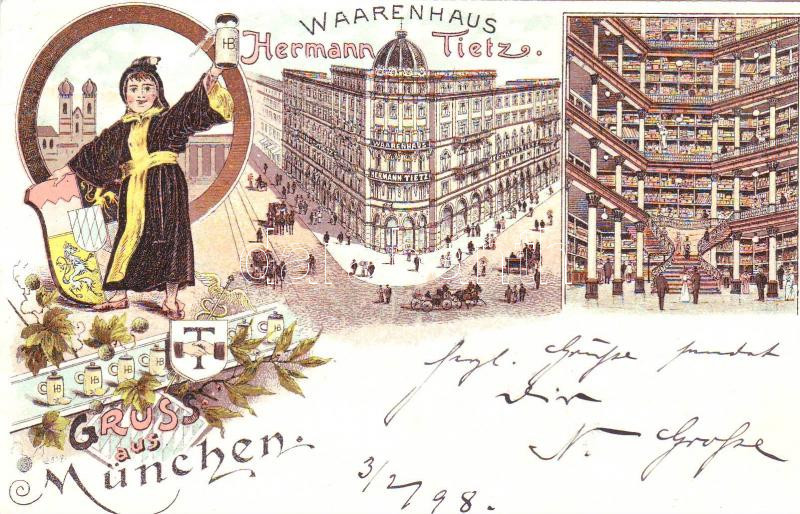 WAARENHAUS
Hermann Tietz.
HB
WAARENHAUS
HERMANN TIETZ
T
HB HB HB HB HB
GRUSS
aus
München.
herzl. Grüße sendet
Dir
N. Große
3/2 98.